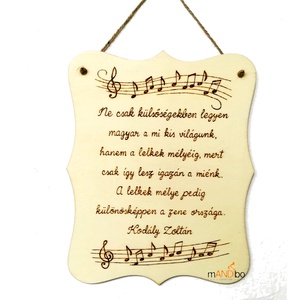 Ne csak külsőségekben legyen
magyar a mi kis világunk,
hanem a lelkek mélyéig, mert
csak így lesz igazán a miénk.
A lelkek mélye pedig
különösképpen a zene országa.
Kodály Zoltán
mANDbo